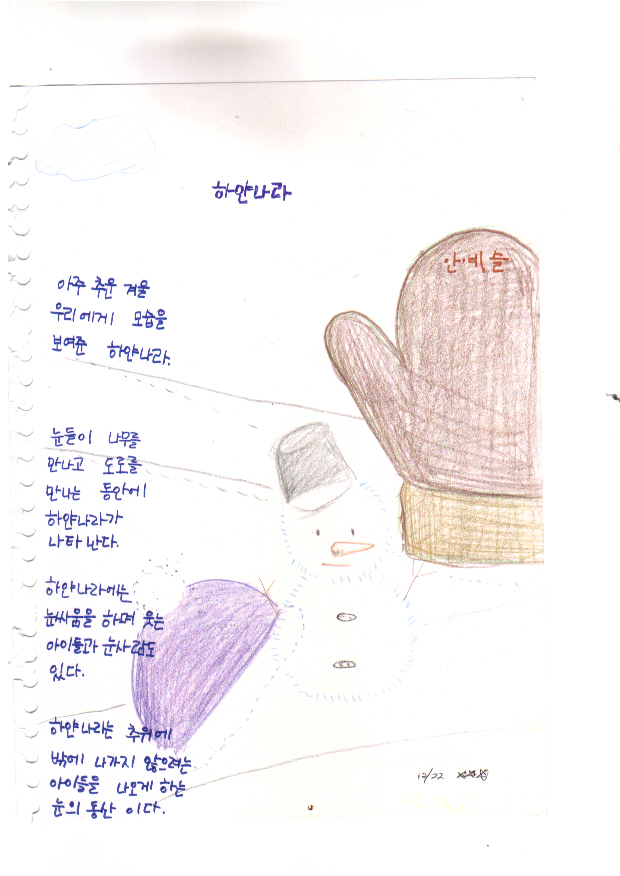 하얀나라
안예슬
아주 추운 겨울
우리에게 모습을
보여준 하얀나라.
눈들이 나무를
만나고 도로를
만나는 동안에
하얀나라가
나타 난다.
하얀나라에는
눈싸움을 하며 웃는
아이들과 눈사람도
있다.
하얀나라는 추위에
밖에 나가지 않으려는
아이들을 나오게 하는
눈의 동산 이다.
12/22